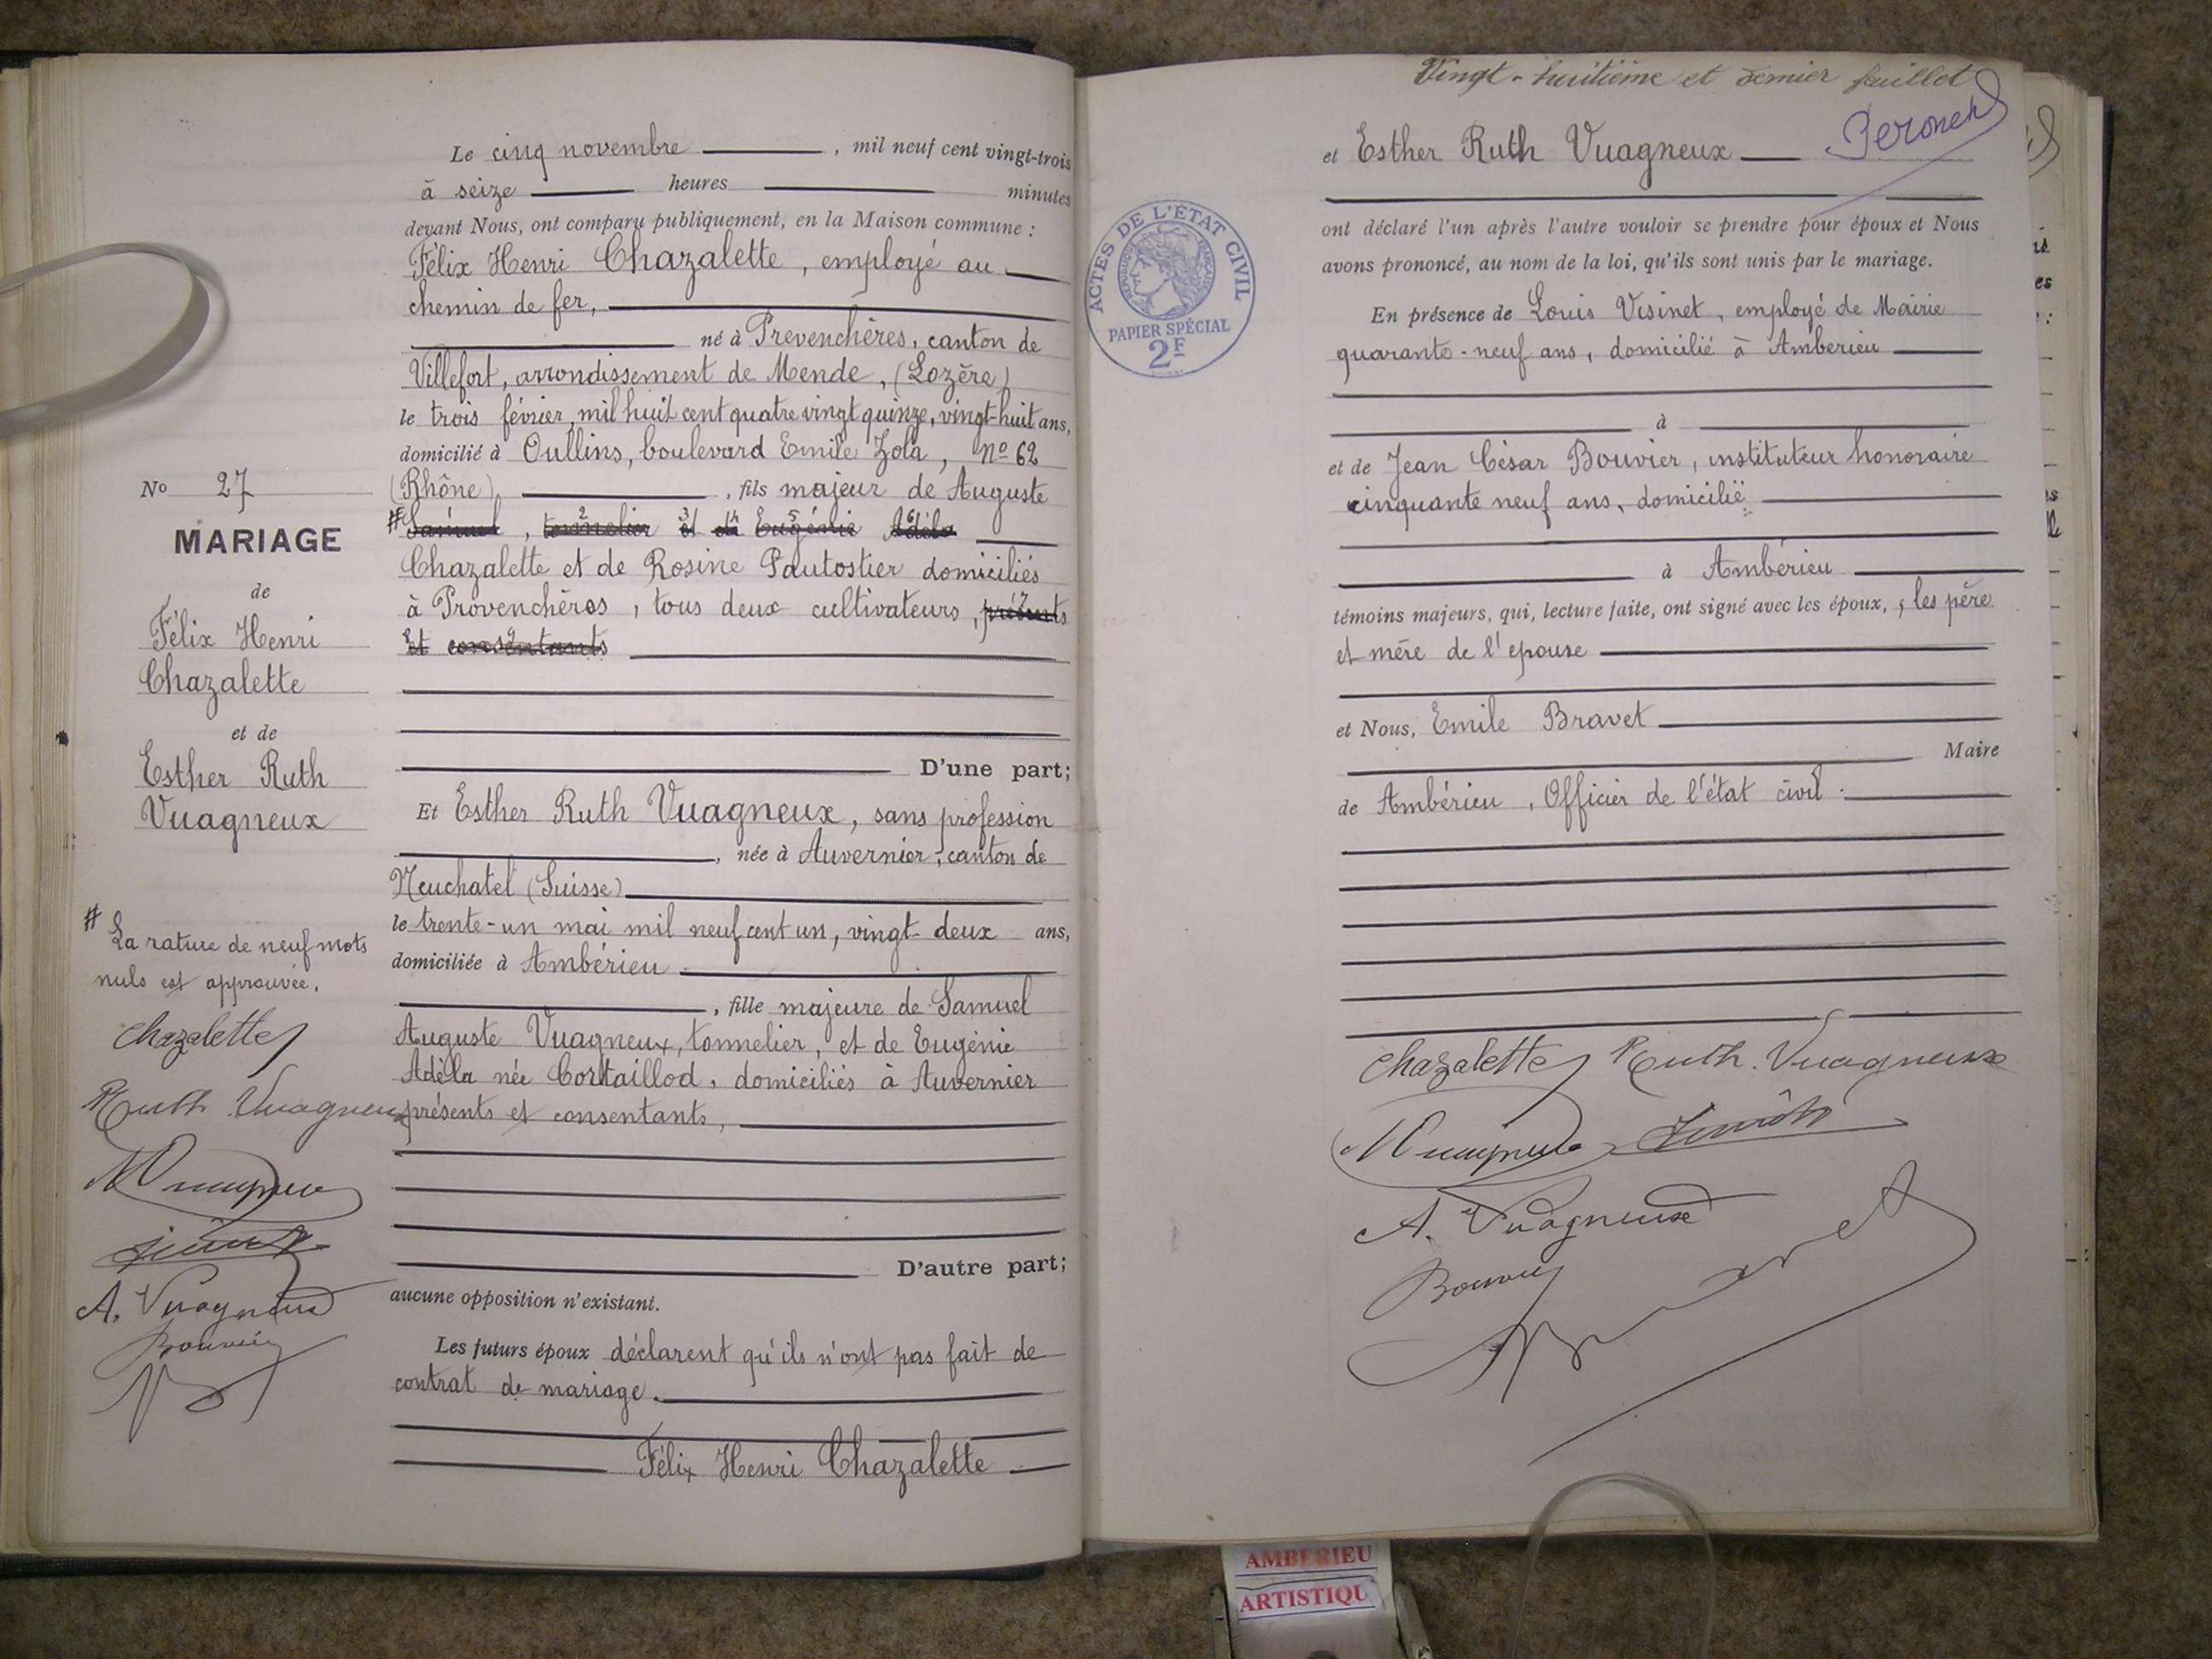 Le cinq novembre , mil neuf cent vingt-trois
à seize heures minutes
devant Nous, ont comparu publiquement, en la Maison commune :
Félix Henri Chazalette, employé au
chemin de fer,
né à Prevenchères, canton de
Villefort, arrondissement de Mende, (Lozère)
le trois février mil huit cent quatre vingt quinze, vingt-huit ans,
domicilié à Oullins, boulevard Emile Zola, No 62
(Rhône) , fils majeur de Auguste
# Samuel , tonnelier et de Eugénie Adèla
Chazalette et de Rosine Pautostier domiciliés
à Provenchères, tous deux cultivateurs, présents
et consentants
D'une part;
Et Esther Ruth Vuagneux, sans profession
, née à Auvernier, canton de
Neuchatel (Suisse)
le trente-un mai mil neuf cent un, vingt-deux ans,
domiciliée à Ambérieu
, fille majeure de Samuel
Auguste Vuagneux, tonnelier, et de Eugénie
Adèla née Cortaillod, domiciliés à Auvernier
présents et consentants,
D'autre part;
aucune opposition n'existant.
Les futurs époux déclarent qu'ils n'ont pas fait de
contrat de mariage.
Félix Henri Chazalette
No 27
MARIAGE
de
Félix Henri
Chazalette
et de
Esther Ruth
Vuagneux
# La rature de neuf mots
nuls est approuvée.
Chazalette
Ruth Vuagneux
A. Vuagneux
Bouvier
Vingt-huitième et dernier feuillet
et Esther Ruth Vuagneux
ont déclaré l'un après l'autre vouloir se prendre pour époux et Nous
avons prononcé, au nom de la loi, qu'ils sont unis par le mariage.
En présence de Louis Visinet, employé de Mairie
quarante-neuf ans, domicilié à Amberieu
à
et de Jean César Bouvier, instituteur honoraire
cinquante neuf ans, domicilié
à Ambérieu
témoins majeurs, qui, lecture faite, ont signé avec les époux, , les père
et mère de l'epouse
et Nous, Emile Bravet
Maire
de Ambérieu, Officier de l'état civil.
Chazalette Ruth. Vuagneux
A. Vuagneux
Bouvier
Bravet
ACTES DE L'ÉTAT CIVIL
RÉPUBLIQUE FRANÇAISE
PAPIER SPÉCIAL
2F
AMBERIEU
ARTISTIQU